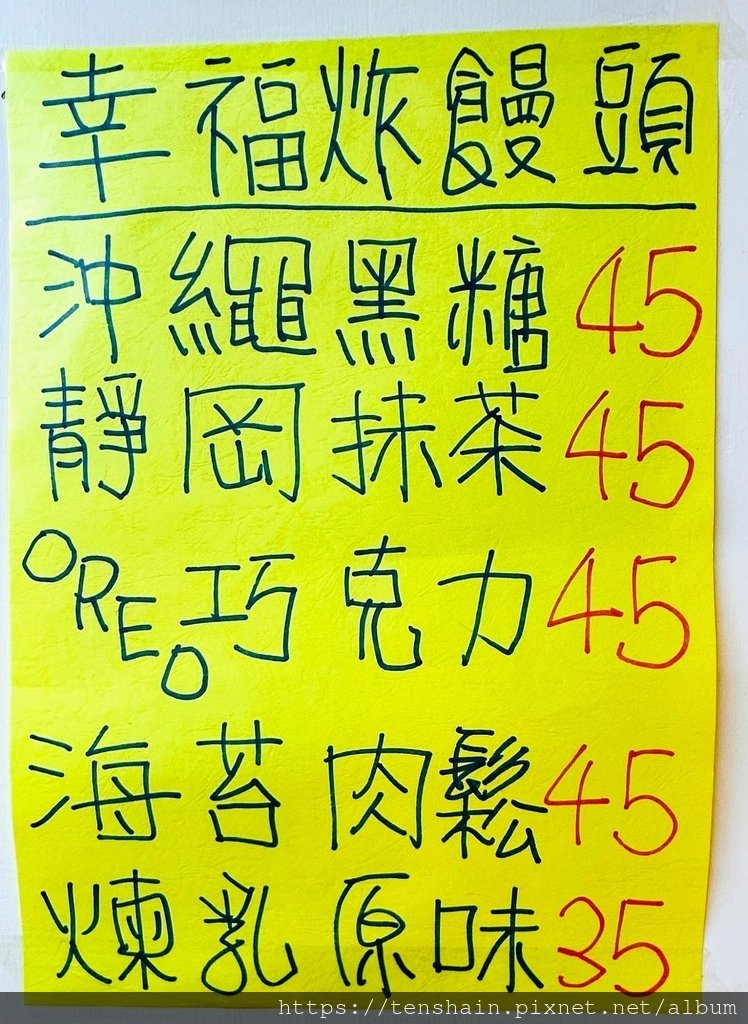 幸福炸饅頭
沖繩黑糖 45
靜岡抹茶 45
OREO巧克力 45
海苔肉鬆 45
煉乳原味 35
https://tenshain.pixnet.net/album